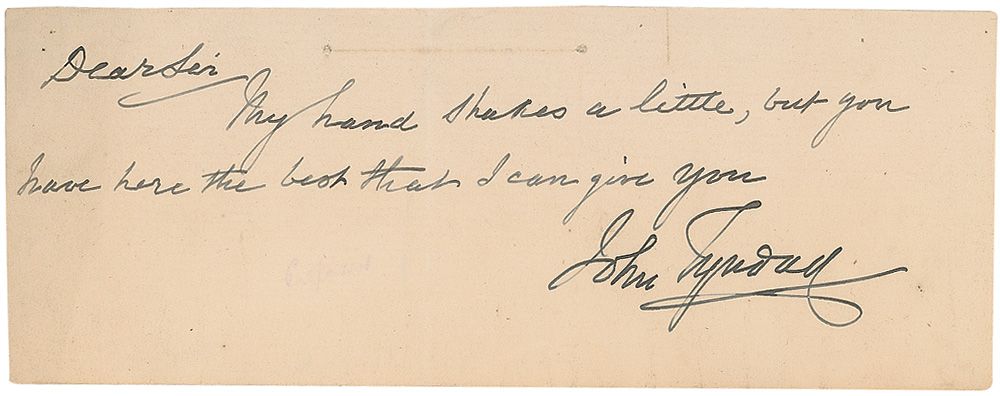 Dear Sir
My hand shakes a little, but you
have here the best that I can give you
John Tyndall